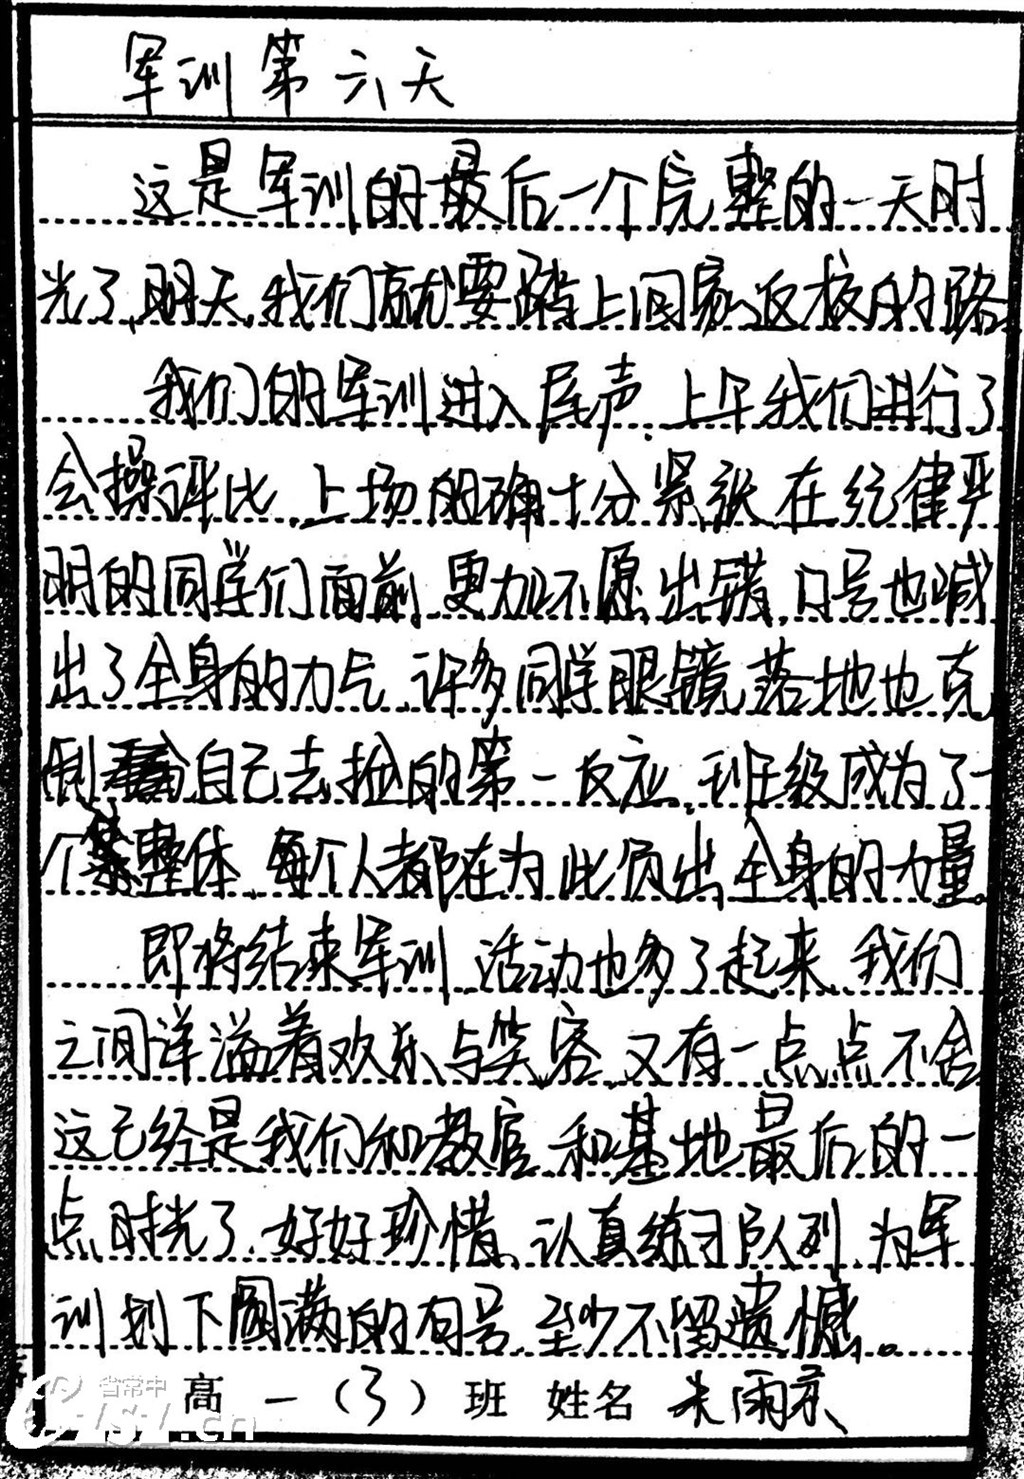 军训第六天
这是军训的最后一个完整的一天时
光了,明天,我们就要踏上回家返校的路
我们的军训进入尾声,上午我们进行了
会操评比,上场的确十分紧张,在纪律严
明的同学们面前,更加不愿出错,口号也喊
出了全身的力气,许多同学眼镜落地也克
制自己去捡的第一反应,班级成为了一
个集整体,每个人都在为此负出全身的力量。
即将结束军训,活动也多了起来,我们
之间洋溢着欢乐与笑容,又有一点点不舍
这已经是我们和教官和基地最后的一
点时光了,好好珍惜,认真练习队列,为军
训划下圆满的句号,至少不留遗憾。
高一(3)班 姓名 朱雨
省常中